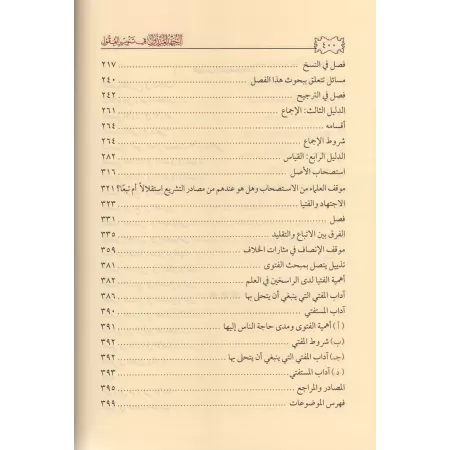 ٤٠٠
فصل في النسخ ٢١٧
مسائل تتعلق ببحوث هذا الفصل ٢٤٠
فصل في الترجيح ٢٤٢
الدليل الثالث: الإجماع ٢٦١
أقسامه ٢٦٤
شروط الإجماع ٢٦٤
الدليل الرابع: القياس ٢٨٢
استصحاب الأصل ٣١٦
موقف العلماء من الاستصحاب وهل هو عندهم من مصادر التشريع استقلالاً أم تبعًا؟ ٣٢١
الاجتهاد والفتيا ٣٢٣
فصل ٣٣١
الفرق بين الاتباع والتقليد ٣٣٥
موقف الإنصاف في مثارات الخلاف ٣٥٩
تذييل يتصل بمبحث الفتوى ٣٨١
أهمية الفتيا لدى الراسخين في العلم ٣٨٢
آداب المفتي التي ينبغي أن يتحلى بها ٣٨٦
آداب المستفتي ٣٩٠
(أ) أهمية الفتوى ومدى حاجة الناس إليها ٣٩١
(ب) شروط المفتي ٣٩٢
(جـ) آداب المفتي التي ينبغي أن يتحلى بها ٣٩٢
(د) آداب المستفتي ٣٩٣
المصادر والمراجع ٣٩٥
فهرس الموضوعات ٣٩٩